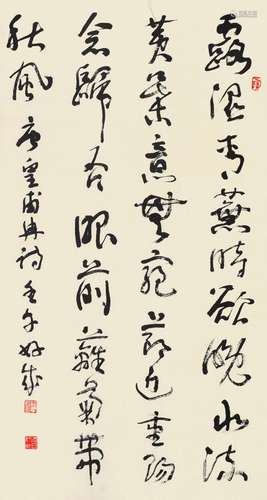 露濕青蕪時欲晚水流
黃葉意無窮節近重陽
念歸否眼前籬菊帶
秋風唐皇甫冉詩壬午